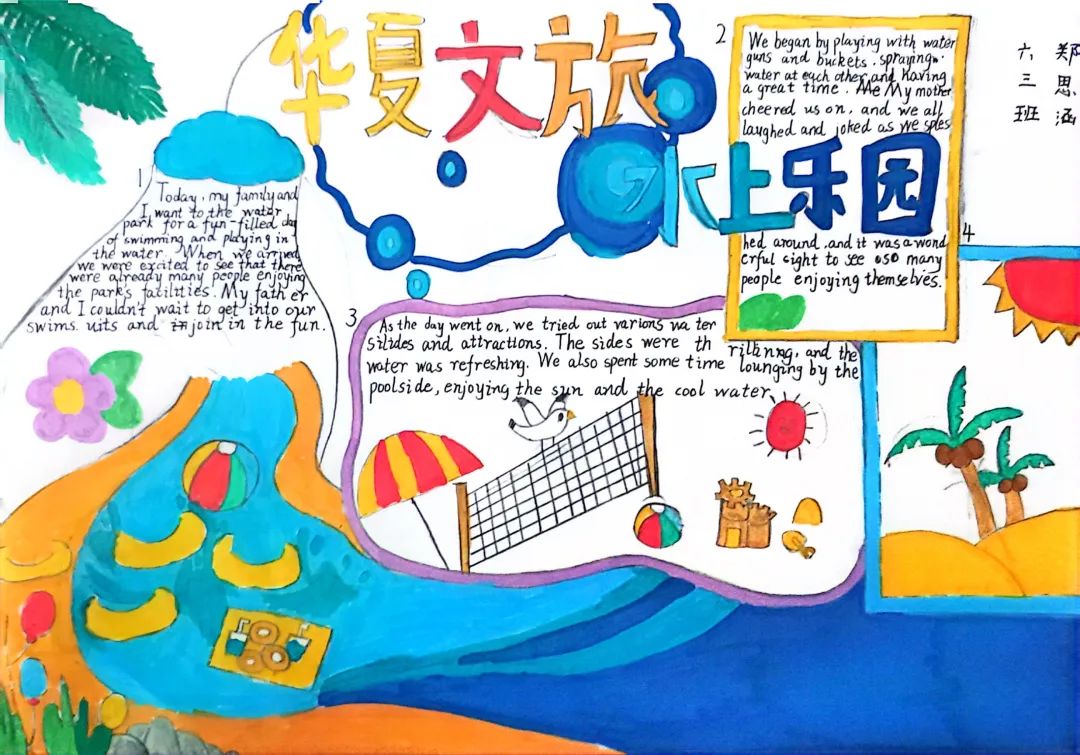 华夏文旅
水上乐园
六三班
郑思涵
1
Today, my family and
I want to the water
park for a fun-filled day
of swimming and playing in
the water. When we arrived
we were excited to see that there
were already many people enjoying
the park's fatilities. My fath er
and I couldn't wait to get into our
swims uits and in join in the fun.
2
We began by playing with water
guns and buckets. spraying
water at each other and having
a great time. Me My mother
cheered us on, and we all
laughed and joked as we sples
hed around, and it was a wond
erful sight to see oso many
people enjoying themselves.
3
As the day went on, we tried out varions wa ter
silides and attractions. The sides were th rilinng, and the
water was refreshing. We also spent some time lounging by the
poolside, enjoying the sun and the cool water.
4